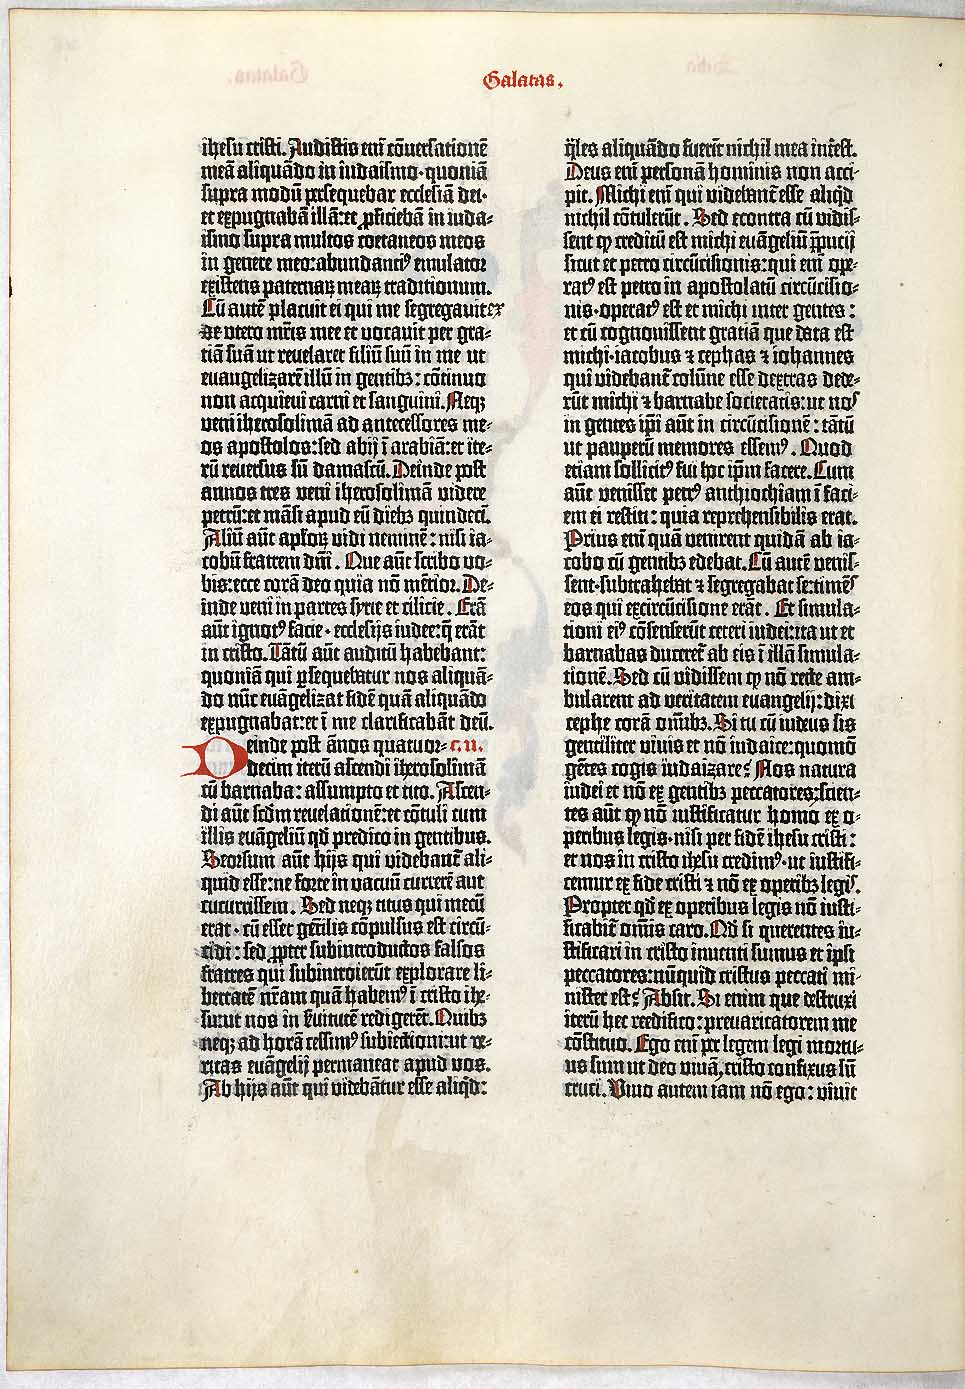 Galatas.
ihesu cristi. Audistis eni͂ cōuersationē
meā aliquādo in iudaismo·quoniā
supra modū ꝑsequebar ecclesiā dei·
et expugnabā illā:et ꝓficiebā in iuda-
ismo supra multos coetaneos meos
in genere meo:abundantiꝰ emulator
existens paternaꝝ meaꝝ traditionum.
Cū autē placuit ei qui me segregauit ex
de vtero mr̄is mee et vocauit per gra-
tiā suā ut reuelaret filiū suū in me ut
euangelizarē illū in gentibꝫ: cōtinuo
non acquieui carni et sanguini. Neqꝫ
veni iherosolimā ad antecessores me-
os apostolos:sed abij ī arabiā:et ite-
rū reuersus sū damascū. Deinde post
annos tres veni iherosolimā videre
petrū:et māsi apud eū diebꝫ quindecī.
Aliū aūt apl'oꝝ vidi neminē: nisi ia-
cobū fratrem dn̄i. Que aūt scribo vo-
bis:ecce corā deo quia nō mētior. De-
inde veni in partes syrie et cilicie. Erā
aūt ignotꝰ facie· ecclesijs iudee:q̄ erāt
in cristo. Tātū aūt auditū habebant:
quoniā qui ꝑsequebatur nos aliquā-
do nūc euāgelizat fidē quā aliquādo
expugnabat:et ī me clarificabāt deū.
Deinde post ānos quatuor- c. II.
decim iterū ascendi iherosolimā
cū barnaba: assumpto et tito. Ascen-
di aūt scd̄m reuelationē:et cōtuli cum
illis euāgeliū qd̄ predico in gentibus.
Seorsum aūt hijs qui videbant̄ ali-
quid esse:ne forte in vacuū currerē aut
cucurrissem. Sed neqꝫ titus qui mecū
erat· cū esset gētilis cōpulsus est circū-
cidi: sed ꝓpter subintroductos falsos
fratres qui subintroierūt explorare li-
bertatē nr̄am quā habemꝰ ī cristo ihe-
su:ut nos in s̄uitutē redigerēt. Quibꝫ
neqꝫ ad horā cessimꝰ subiectioni:ut ve-
ritas euāgelij permaneat apud vos.
Ab hijs aūt qui videbātur esse aliqd̄:
q̄les aliquādo fuerīt nichil mea intēst.
Deus eni͂ personā hominis non acci-
pit. Michi eni͂ qui videbant̄ esse aliqd̄
nichil cōtulerūt. Sed econtra cū vidis-
sent ꝙ creditū est michi euāgeliū p̄pucij
sicut et petro circūcisionis:qui eni͂ ope-
ratꝰ est petro in apostolatū circūcisio-
nis·operatꝰ est et michi inter gentes:
et cū cognouissent gratiā que data est
michi·iacobus ⁊ cephas ⁊ iohannes
qui videbant̄ colūne esse dextras dede-
rūt michi ⁊ barnabe societatis:ut nos
in gentes ip̄i aūt in circūcisionē: tātū
ut pauperū memores essemꝰ. Quod
etiam sollicitꝰ fui hoc ip̄m facere. Cum
aūt venisset petrꝰ anthiochiam ī faci-
em ei restiti: quia reprehensibilis erat.
Prius eni͂ quā venirent quidā ab ia-
cobo cū gentibꝫ edebat. Cū autē venis-
sent·subtrahebat ⁊ segregabat se:timēs
eos qui ex circūcisione erāt. Et simula-
tioni eiꝰ cōsenserūt ceteri iudei:ita ut et
barnabas duceret̄ ab eis ī illā simula-
tionē. Sed cū vidissem ꝙ nō recte am-
bularent ad veritatem euangelij: dixi
cephe corā om̄ibꝫ. Si tu cū iudeus sis
gentiliter viuis et nō iudaice:quomō
gētes cogis iudaizare? Nos natura
iudei et nō ex gentibꝫ peccatores:scien-
tes aūt ꝙ nō iustificatur homo ex o-
peribus legis·nisi per fidē ihesu cristi:
et nos in cristo ihesu credimꝰ·ut iustifi-
cemur ex fide cristi ⁊ nō ex operibꝫ legis.
Propter qd̄ ex operibus legis nō iusti-
ficabit̄ om̄is caro. Qd̄ si querentes iu-
stificari in cristo inuenti sumus et ipsi
peccatores:nūquid cristus peccati mi-
nister est? Absit. Si enim que destruxi
iterū hec reedifico: preuaricatorem me
cōstituo. Ego eni͂ ꝑ legem legi mortu-
us sum ut deo viuā, cristo confixus sū
cruci. Viuo autem iam nō ego: viuit